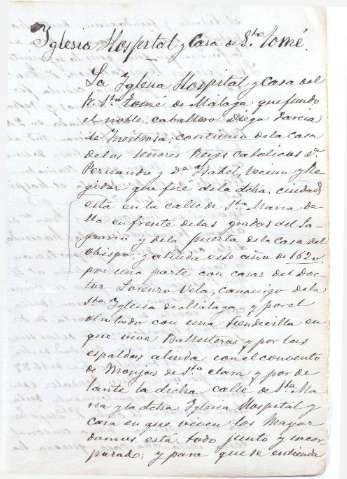 Yglesia Hospital y Casa de Sto Tomé.
La Yglesia Hospital y Casa del
Sr. Sto Tomé de Málaga, que fundó
el noble caballero Diego Garcia
de Hinistrosa, continuo de la casa
de los Señores Reyes Catolicos Dn
Fernando y Dª Isabel, vecino y Re-
gidor que fué de la dcha. ciudad,
está en la calle de Sta Maria de-
lla en frente de las gradas del Sa-
grario y de la puerta de la casa del
obispo: y alinda este año de 162
por una parte con casas del Doc-
tor Lorenzo Vela, canonigo de la
Sta Yglesia de Málaga y por el
otro lado con una tiendecilla en
que vive Ballesteros y por las
espaldas alinda con el convento
de Monjas de Sta Clara y por de-
lante la dicha calle de Sta Ma-
ria y la dcha Yglesia Hospital y
casa en que viven los Mayor-
domos está todo junto y incor-
porado: y para que se entienda